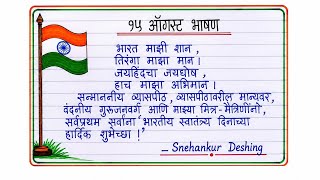 १५ ऑगस्ट भाषण
भारत माझी शान ,
तिरंगा माझा मान ।
जयहिंदचा जयघोष ,
हाच माझा अभिमान ।
सन्माननीय व्यासपीठ , व्यासपीठावरील मान्यवर ,
वंदनीय गुरुजनवर्ग आणि माझ्या मित्र-मैत्रिणींनो,
सर्वप्रथम सर्वांना 'भारतीय स्वातंत्र्य दिनाच्या
हार्दिक शुभेच्छा !'
- Snehankur Deshing